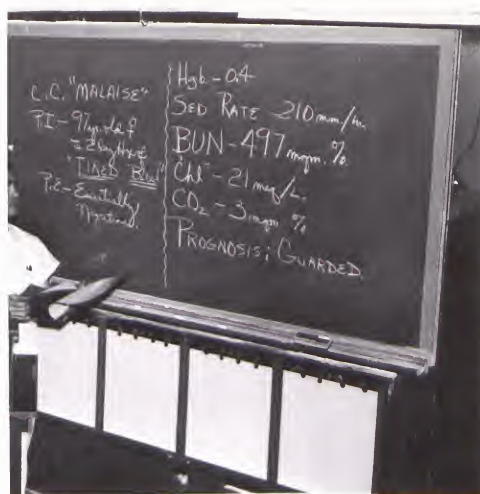 C.C. "MALAISE"
P.I - 97 yr. old f
c̄ 2 day Hx of
"TIRED Blood"
P.E - Essentially
Negative.
Hgb - 0.4
SED RATE 210 mm/hr.
BUN - 497 mgm. %
Chl⁻ - 21 meq/L.
CO₂ - 3 mgm %
PROGNOSIS; GUARDED.